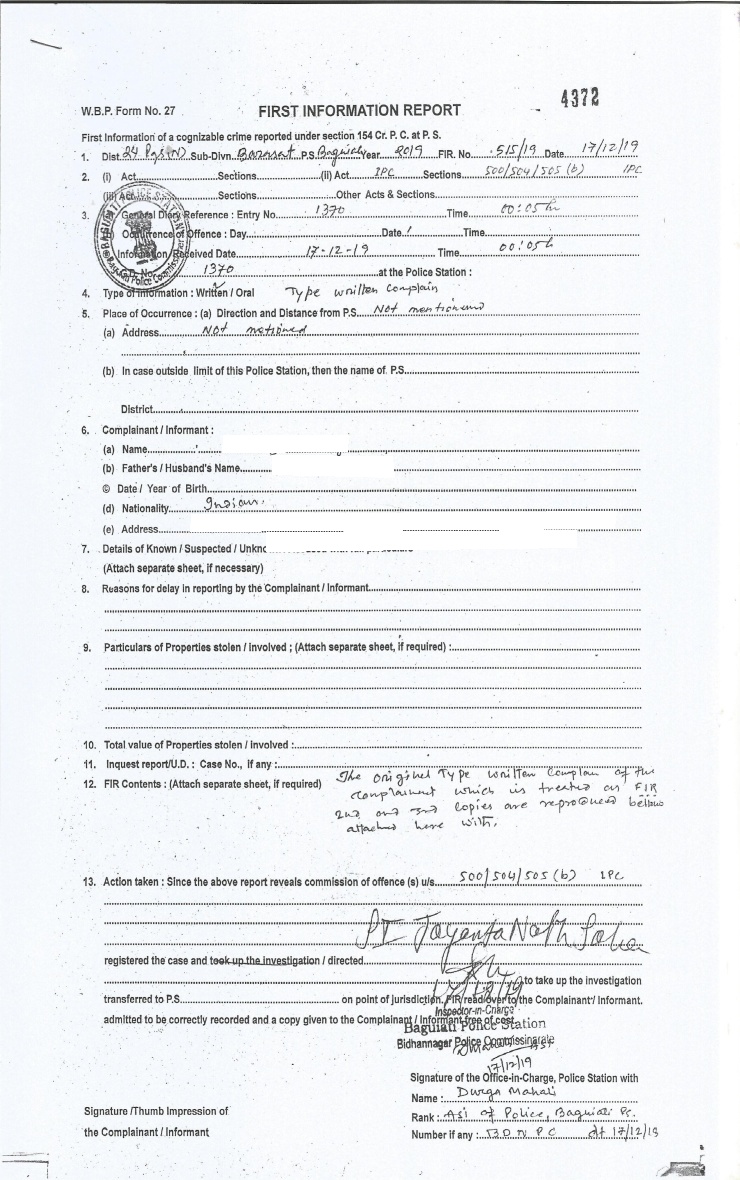 4372
W.B.P. Form No. 27 FIRST INFORMATION REPORT
First Information of a cognizable crime reported under section 154 Cr. P. C. at P. S.
1. Dist. 24 Pgs (N) Sub-Divn. Barasat P.S. Baguiati Year 2019 FIR. No. 515/19 Date 17/12/19
2. (i) Act Sections (ii) Act IPC Sections 500/504/505 (b) IPC
(iii) Act Sections Other Acts & Sections
3. General Diary Reference : Entry No. 1370 Time 00:05h
Occurrence of Offence : Day Date Time
Information Received Date 17-12-19 Time 00:05h
G.D. No. 1370 at the Police Station :
4. Type of Information : Written / Oral Type written complain
5. Place of Occurrence : (a) Direction and Distance from P.S. Not mentioned
(a) Address Not metioned
(b) In case outside limit of this Police Station, then the name of P.S.
District
6. Complainant / Informant :
(a) Name
(b) Father's / Husband's Name
© Date / Year of Birth
(d) Nationality Indian.
(e) Address
7. Details of Known / Suspected /
(Attach separate sheet, if necessary)
8. Reasons for delay in reporting by the Complainant / Informant
9. Particulars of Properties stolen / involved ; (Attach separate sheet, if required) :
10. Total value of Properties stolen / involved :
11. Inquest report/U.D. : Case No., if any :
12. FIR Contents : (Attach separate sheet, if required) The original Type written complain of the
complainant which is treated as FIR
2nd and 3rd copies are reproduced bellow
attached here with.
13. Action taken : Since the above report reveals commission of offence (s) u/s 500/504/505 (b) IPC
PI Jayanta Nath Saha
registered the case and took up the investigation / directed
to take up the investigation
transferred to P.S. on point of jurisdiction. FIR read over to the Complainant / Informant.
17/12/19
Inspector-in-Charge
admitted to be correctly recorded and a copy given to the Complainant / Informant free of cost.
Baguiati Police Station
Bidhannagar Police Commissinarate
17/12/19
Signature of the Office-in-Charge, Police Station with
Name : Durga Mahali
Signature /Thumb Impression of
Rank : ASI of Police, Baguiati Ps.
the Complainant / Informant
Number if any : BDN PC dt 17/12/19